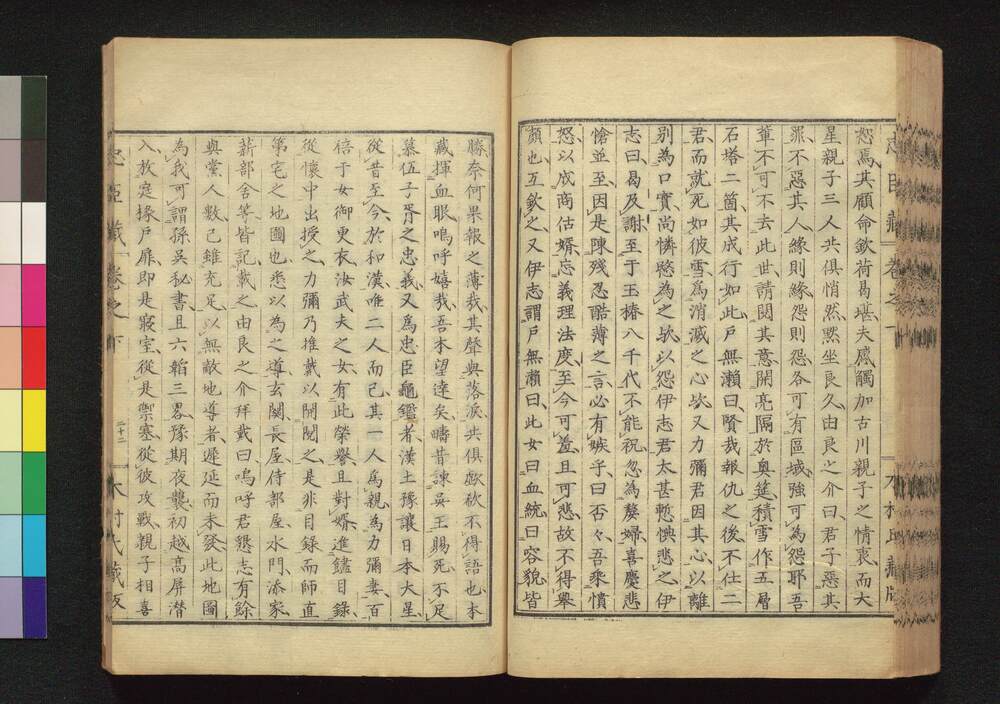 恕焉其顧命欽荷曷堪夫感觸加古川親子之情衷而大
星親子三人共俱悄然默坐良久由良之介曰君子惡其
罪不惡其人緣則緣怨則怨各可有區域強可為怨耶吾
輩不可不去此世請閱其意開亮隔於奧筵積雪作五層
石塔二箇其成行如此戶無瀨曰賢哉報仇之後不仕二
君而就死如彼雪爲消滅之心歟又力彌君因其心以離
別為口實尚憐愍為之歟以怨伊志君太甚慙愧悲之伊
志曰曷及謝至于玉椿八千代不能祝忽為嫠婦喜慶悲
愴並至因是陳殘忍酷薄之言必有嫉予曰否々吾豢憤
怒以成商估婿忘義理法麽至今可羞且可悲故不得舉
顏也互欽之又伊志謂戶無瀨曰此女曰血統曰容貌皆
勝奈何果報之薄哉其聲與落淚共俱歔欷不得語也本
藏揮血眼嗚呼嬉哉吾本望達矣疇昔諫吳王賜死不足
慕伍子胥之忠義又爲忠臣龜鑑者漢土豫讓日本大星
從昔至今於和漢唯二人而已其一人爲親為力彌妻百
倍于女御更衣汝武夫之女有此榮譽且對婿進鑓目錄
從懷中出授之力彌乃推戴以開閱之是非目錄而師直
第宅之地圖也悉以為之導玄關長屋侍部屋水門添家
薪部舍等皆記載之由良之介拜戴曰嗚呼君懇志有餘
與黨人數已雖充足以無敵地導者遲延而未發此地圖
為我可謂孫吳秘書且六韜三畧豫期夜襲初越高屏潛
入放定椽戶扉即是寢室從是禦塞從彼攻戰親子相喜
忠臣藏 卷之下 二十二 木村氏藏板